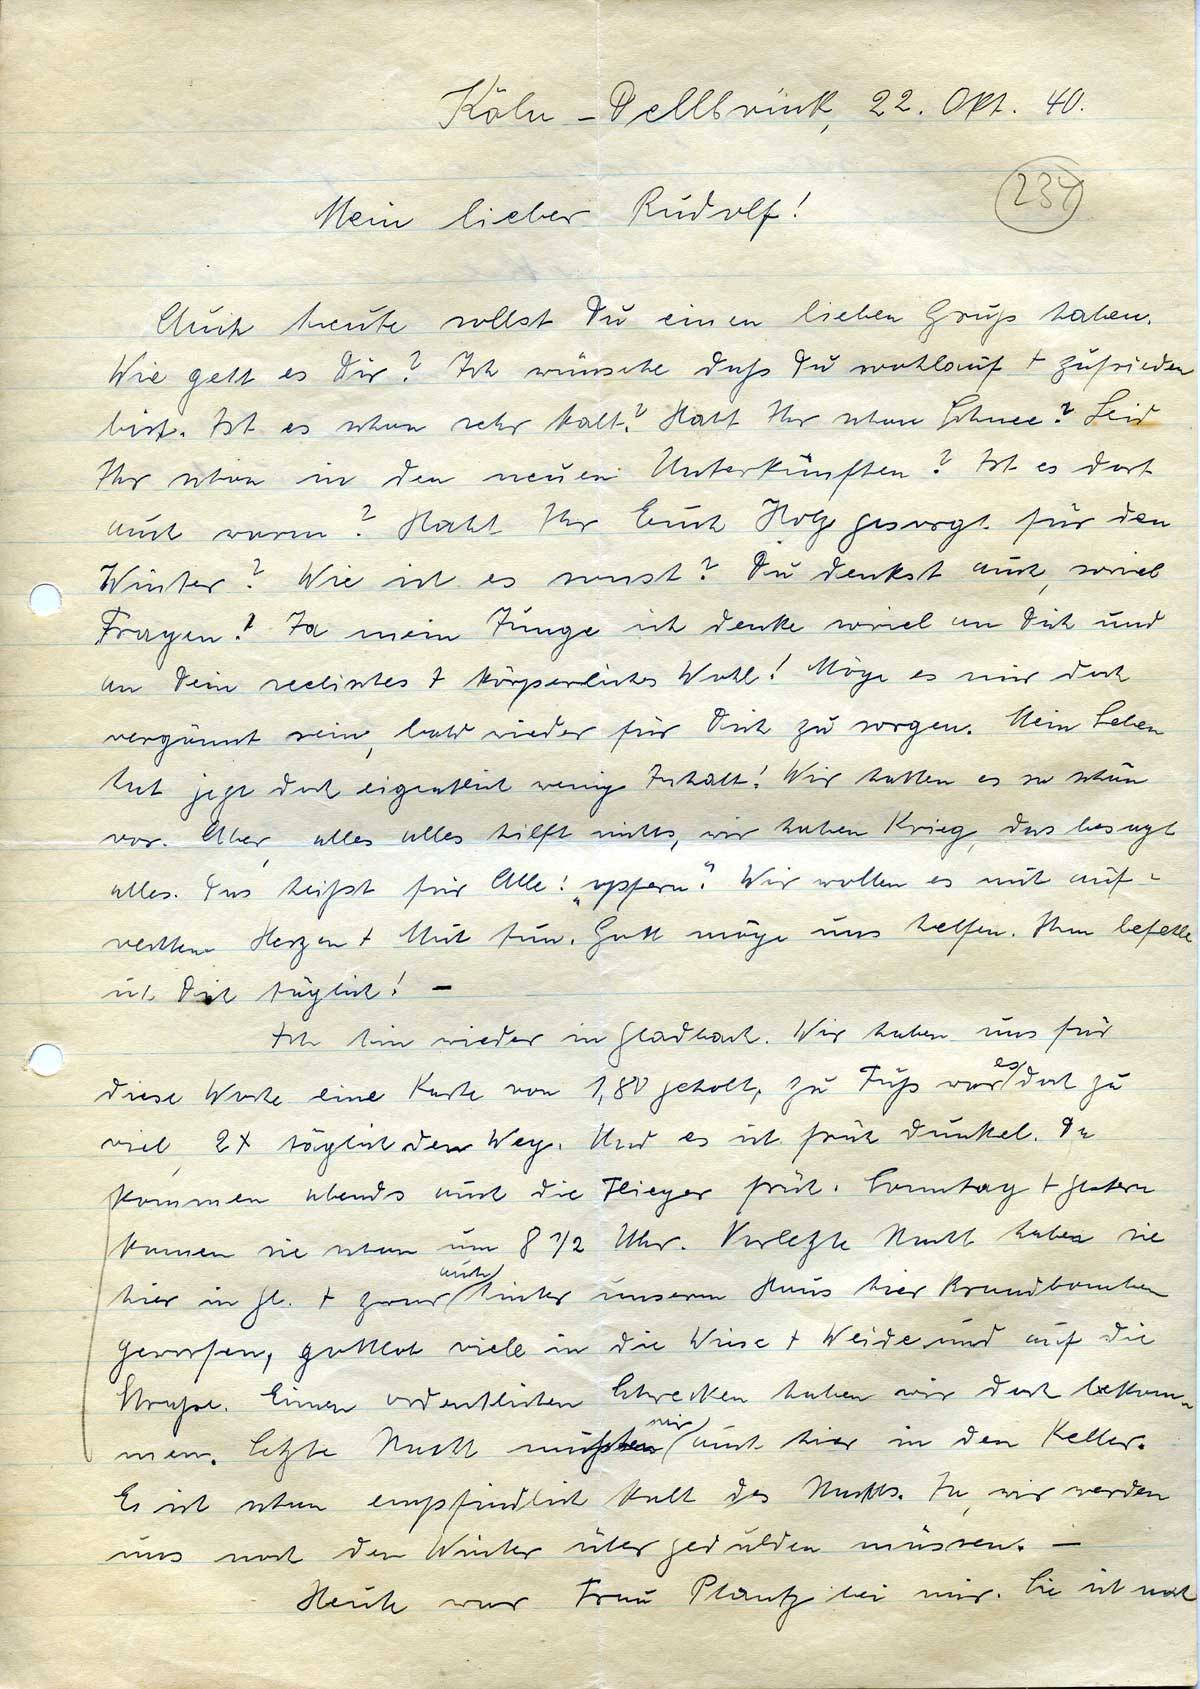 Köln – Dellbrück, 22. Okt. 40.
237
Mein lieber Rudolf!
Auch heute sollst Du einen lieben Gruß haben.
Wie geht es Dir? Ich wünsche daß Du wohlauf + zufrieden
bist. Ist es schon sehr kalt? Habt Ihr schon Schnee? Seid
Ihr schon in den neuen Unterkünften? Ist es dort
auch warm? Habt Ihr Euch Holz gesorgt für den
Winter? Wie ist es sonst? Du denkst auch, soviel
Fragen! Ja mein Junge ich denke soviel an Dich und
an Dein seelisches + körperliches Wohl! Möge es mir doch
vergönnt sein, bald wieder für Dich zu sorgen. Mein Leben
hat jetzt doch eigentlich wenig Inhalt! Wir hatten es so schön
vor. Aber, alles alles hilft nichts, wir haben Krieg, das besagt
alles. Das heißt für Alle! „opfern". Wir wollen es mit auf-
rechtem Herzen + Mut tun. Gott möge uns helfen. Ihm befehle
ich Dich täglich! –
Ich bin wieder in Gladbach. Wir haben uns für
diese Woche eine Karte von 1,80 geholt, zu Fuß war es doch zu
viel, 2x täglich den Weg. Und es ist früh dunkel. Da
kommen abends auch die Flieger früh. Sonntag + gestern
kamen sie schon um 8 1/2 Uhr. Vorletzte Nacht haben sie
hier in Gl. + zwar auch hinter unserm Haus hier Brandbomben
geworfen, gottlob viele in die Wiese + Weide und auf die
Straße. Einen ordentlichen Schrecken haben wir doch bekom-
men. Letzte Nacht mußten wir auch hier in den Keller.
Es ist schon empfindlich kalt des Nachts. Ja, wir werden
uns noch den Winter über gedulden müssen. –
Heute war Frau Plautz bei mir. Sie ist noch